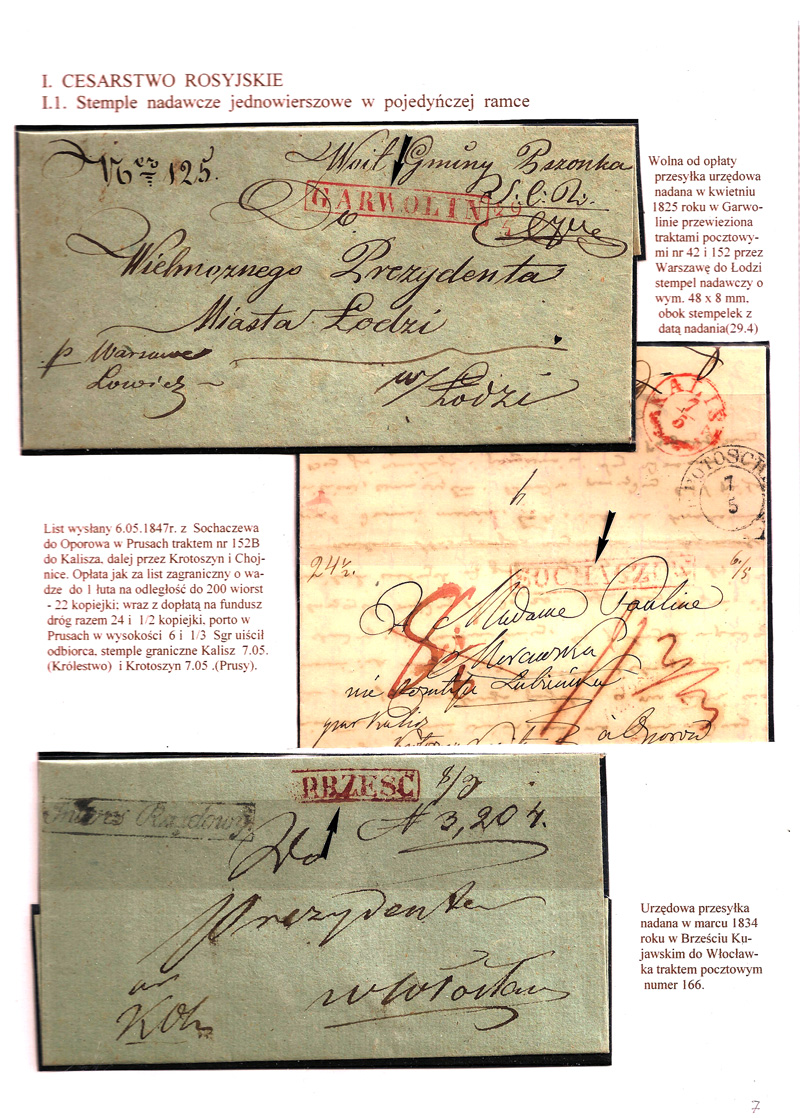 I. CESARSTWO ROSYJSKIE
I.1. Stemple nadawcze jednowierszowe w pojedyńczej ramce
Nero 125.
Woit Gminy Pszonka
GARWOLIN
29
4
Do
Wielmoznego Prezydenta
Miasta Łodzi
p Warszawe
Lowicz
w/ Łodzi
Wolna od opłaty
przesyłka urzędowa
nadana w kwietniu
1825 roku w Garwo-
linie przewieziona
traktami pocztowy-
mi nr 42 i 152 przez
Warszawę do Łodzi
stempel nadawczy o
wym. 48 x 8 mm.
obok stempelek z
datą nadania(29.4)
KALISZ
7
5
KROTOSCHIN
7
5
24 1/2.
SOCHACZEW
6/5
Madame Pauline
née
Lubińska
par Kalisz
à Oporów
List wysłany 6.05.1847r. z Sochaczewa
do Oporowa w Prusach traktem nr 152B
do Kalisza, dalej przez Krotoszyn i Choj-
nice. Opłata jak za list zagraniczny o wa-
dze do 1 łuta na odległość do 200 wiorst
- 22 kopiejki; wraz z dopłatą na fundusz
dróg razem 24 i 1/2 kopiejki, porto w
Prusach w wysokości 6 i 1/3 Sgr uiścił
odbiorca, stemple graniczne Kalisz 7.05.
(Królestwo) i Krotoszyn 7.05 .(Prusy).
BRZESC
8/3
Interes Rządowy
N 3,204.
Do
Prezydenta
w Włocław
Urzędowa przesyłka
nadana w marcu 1834
roku w Brześciu Ku-
jawskim do Włocław-
ka traktem pocztowym
numer 166.
7